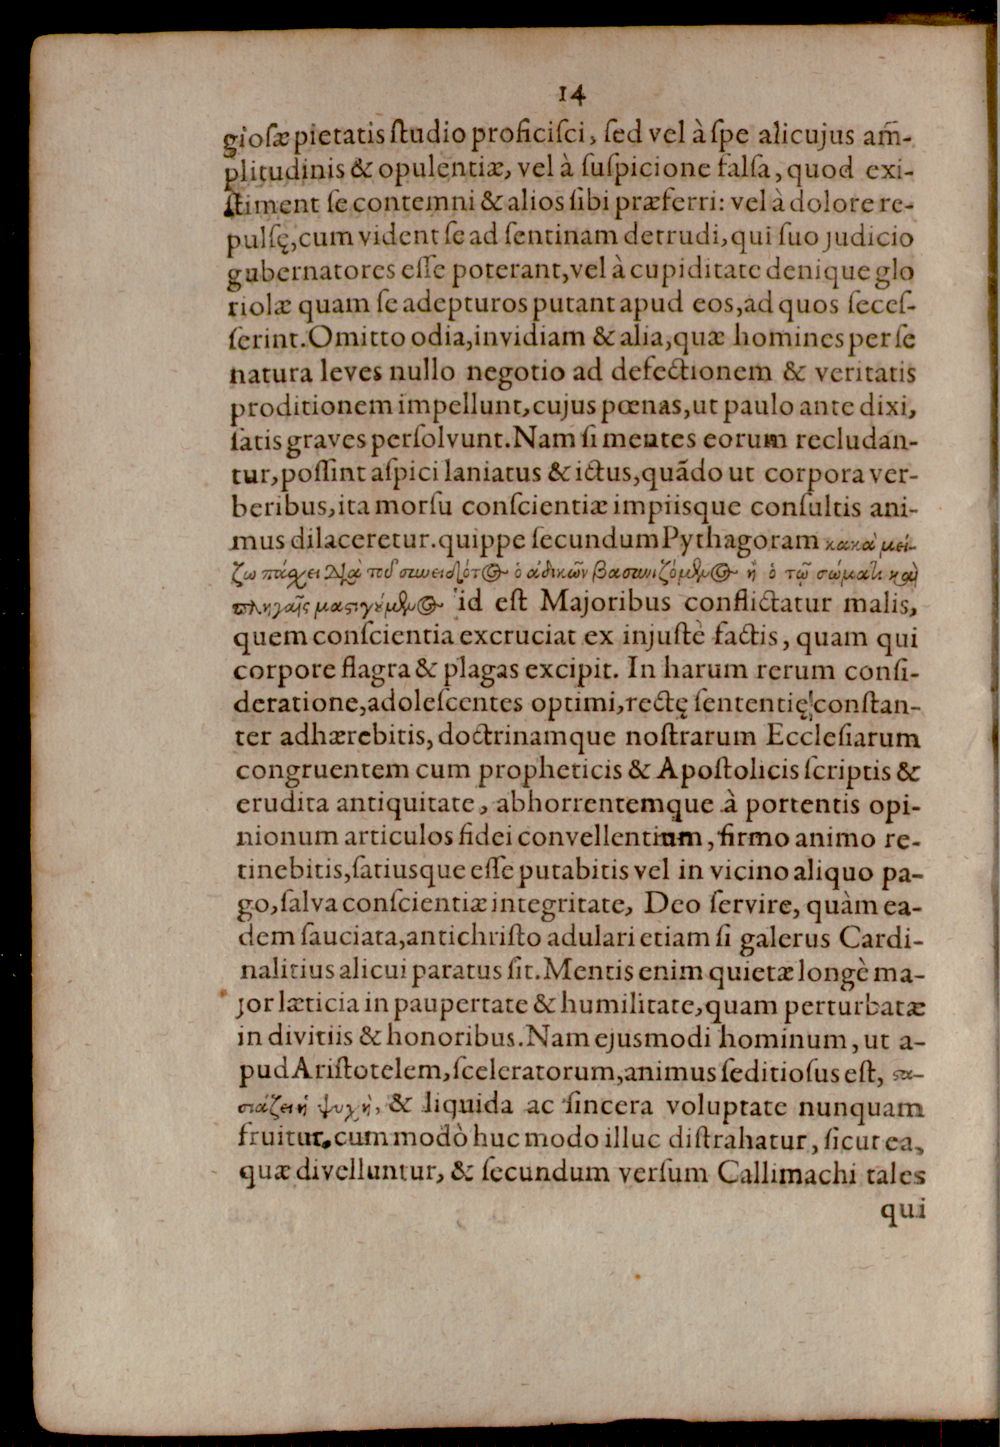 14
gioſæ pietatis ſtudio proficiſci, ſed vel à ſpe alicujus am̃-
plitudinis & opulentiæ, vel à ſuſpicione falſa, quod exi-
ſtiment ſe contemni & alios ſibi præferri: vel à dolore re-
pulſę, cum vident ſe ad ſentinam detrudi, qui ſuo judicio
gubernatores eſſe poterant, vel à cupiditate denique glo
riolæ quam ſe adepturos putant apud eos, ad quos ſeceſ-
ſerint. Omitto odia, invidiam & alia, quæ homines per ſe
natura leves nullo negotio ad defectionem & veritatis
proditionem impellunt, cujus pœnas, ut paulo ante dixi,
ſatis graves perſolvunt. Nam ſi mentes eorum recludan-
tur, poſſint aſpici laniatus & ictus, quãdo ut corpora ver-
beribus, ita morſu conſcientiæ impiisque conſultis ani-
mus dilaceretur. quippe ſecundum Pythagoram κακὰ μεί-
ζω πάσχει διὰ τοῦ συνειδότος ὁ ἀδικῶν βασανιζόμενος ἢ ὁ τῷ σώματι καὶ
πληγαῖς μαστιγούμενος id eſt Majoribus conflictatur malis,
quem conſcientia excruciat ex injuſtè factis, quam qui
corpore flagra & plagas excipit. In harum rerum conſi-
deratione, adoleſcentes optimi, rectę ſententię conſtan-
ter adhærebitis, doctrinamque noſtrarum Eccleſiarum
congruentem cum propheticis & Apoſtolicis ſcriptis &
erudita antiquitate, abhorrentemque à portentis opi-
nionum articulos fidei convellentium, firmo animo re-
tinebitis, ſatiusque eſſe putabitis vel in vicino aliquo pa-
go, ſalva conſcientiæ integritate, Deo ſervire, quàm ea-
dem ſauciata, antichriſto adulari etiam ſi galerus Cardi-
nalitius alicui paratus ſit. Mentis enim quietæ longè ma-
jor læticia in paupertate & humilitate, quam perturbatæ
in divitiis & honoribus. Nam ejusmodi hominum, ut a-
pud Ariſtotelem, ſceleratorum, animus ſeditioſus eſt, στα-
σιάζει ἡ ψυχὴ, & liquida ac ſincera voluptate nunquam
fruitur. cum modò huc modo illuc diſtrahatur, ſicut ea,
quæ divelluntur, & ſecundum verſum Callimachi tales
qui